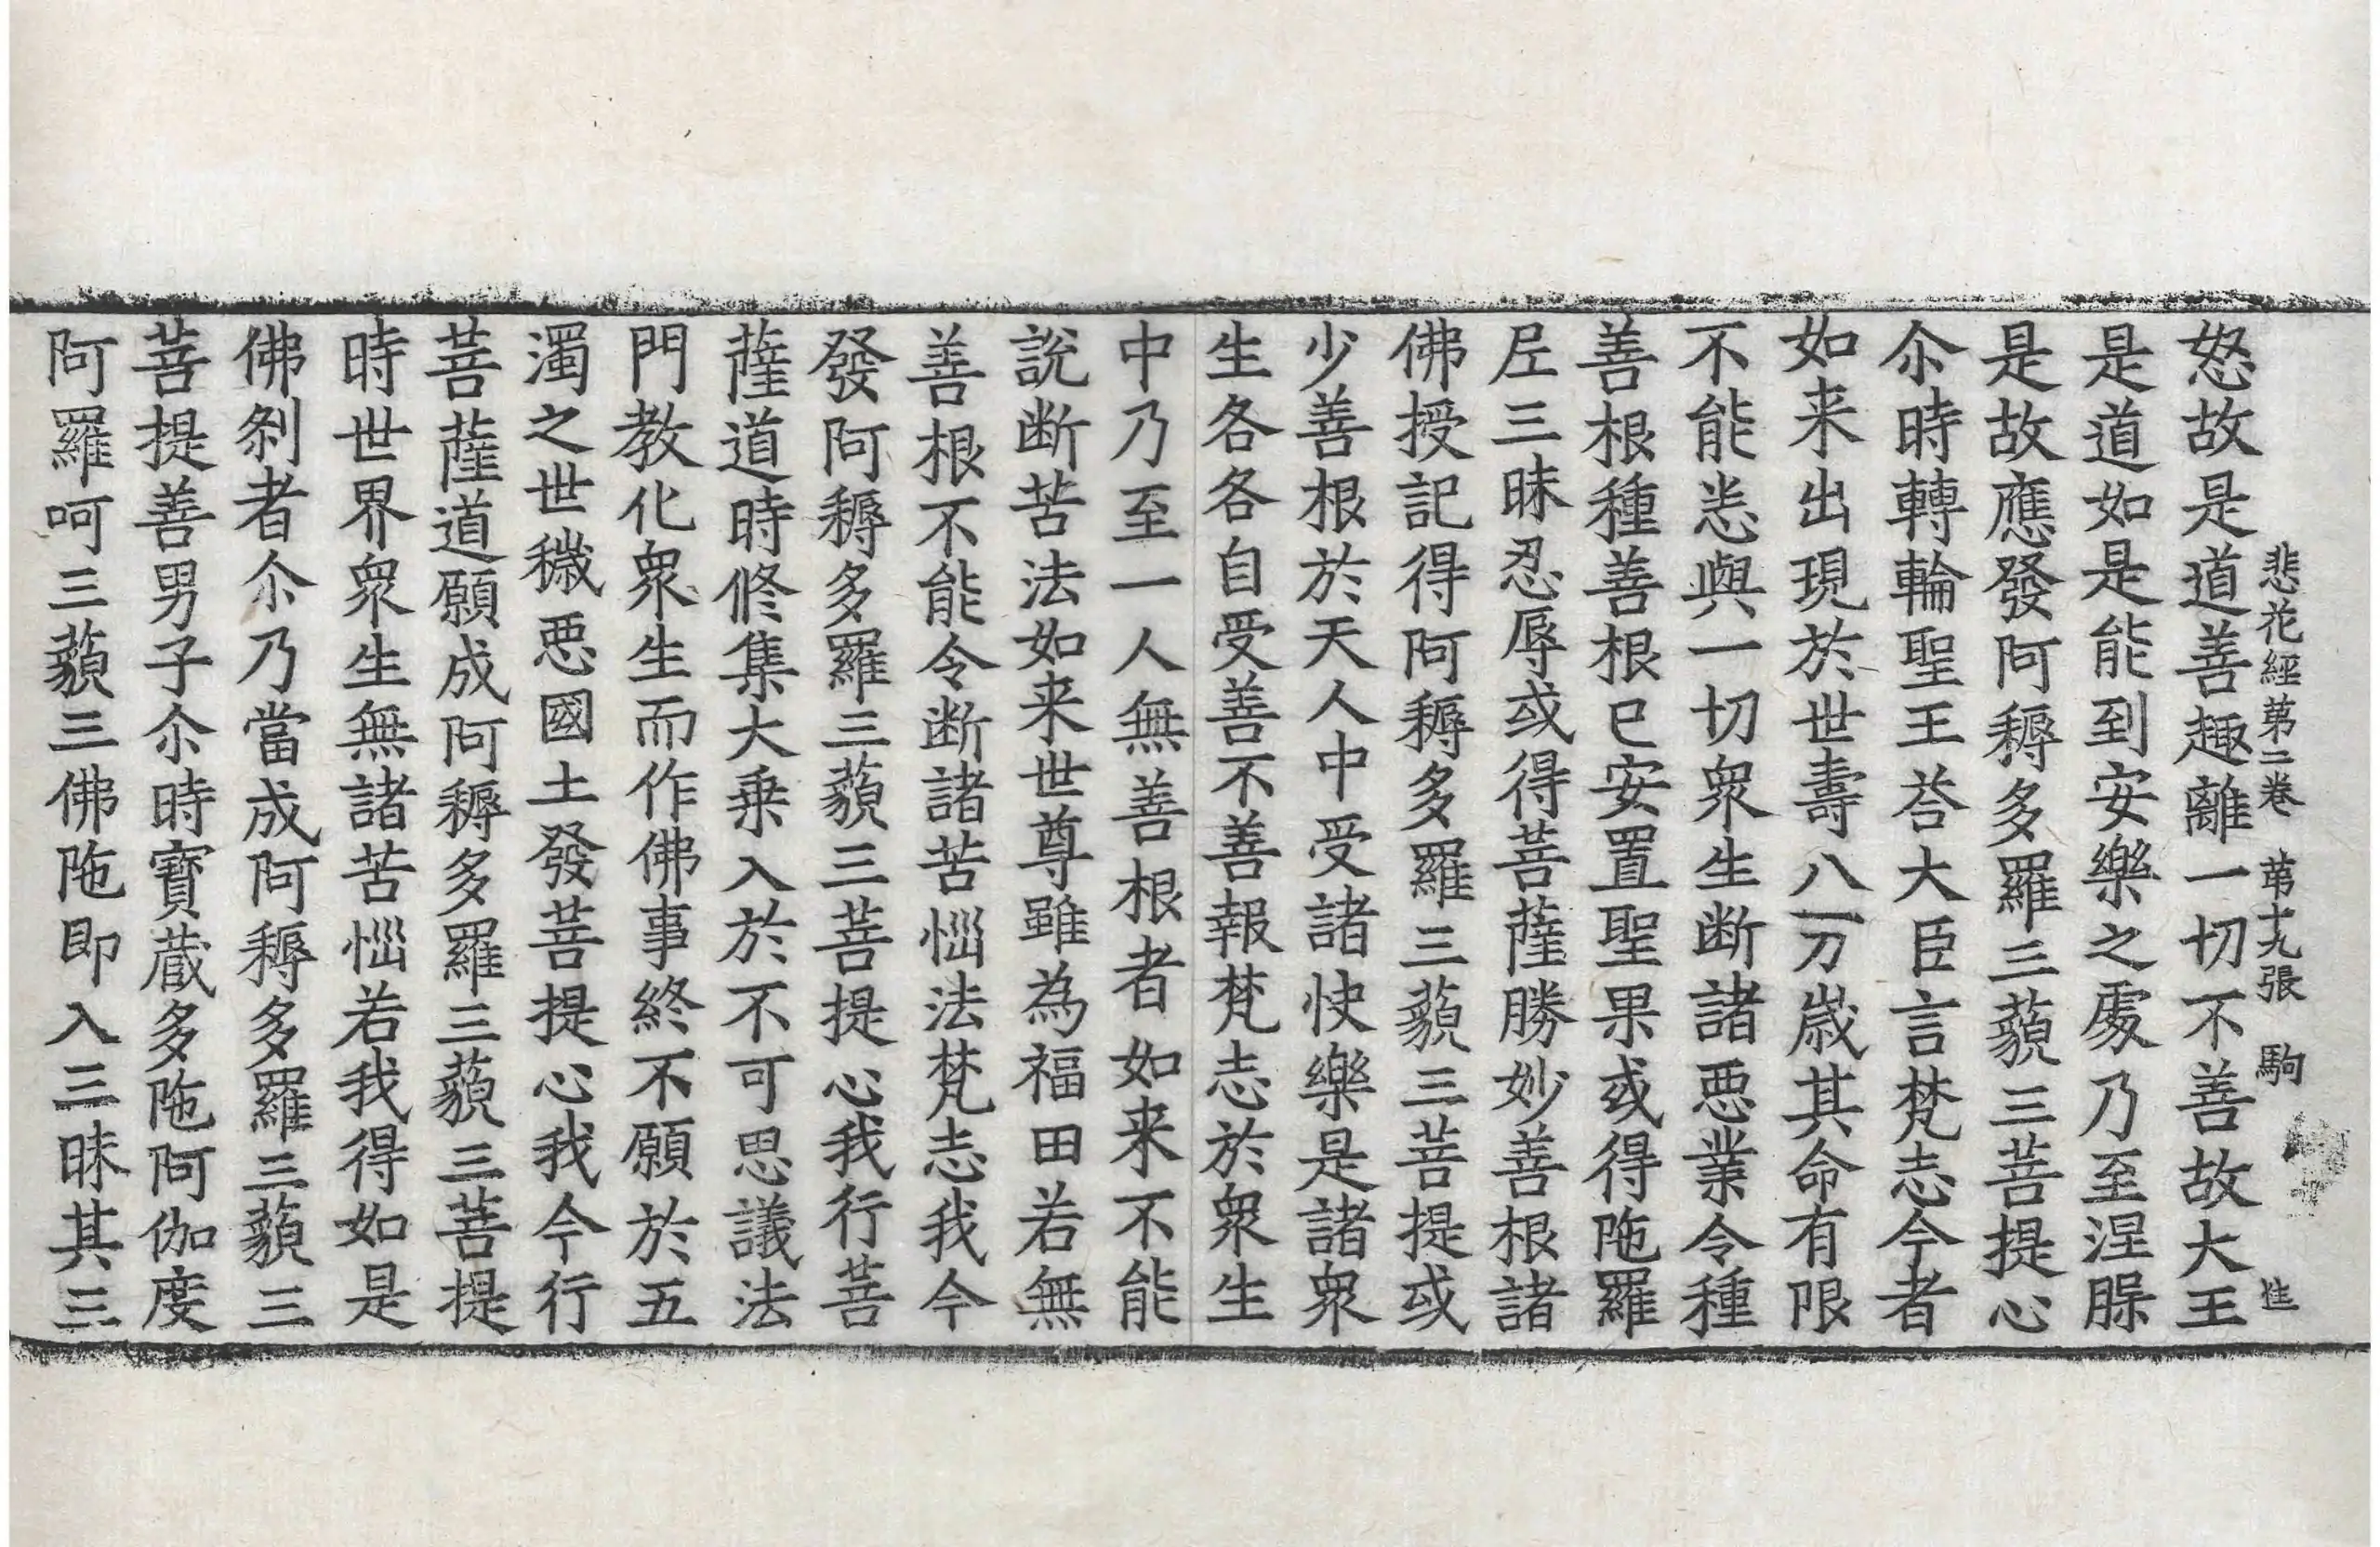 悲花經第二卷 第十九張 駒 進
怒故是道善趣離一切不善故大王
是道如是能到安樂之處乃至涅脲
是故應發阿耨多羅三藐三菩提心
尒時轉輪聖王荅大臣言梵志今者
如来出現於世壽八万歲其命有限
不能悉與一切衆生断諸惡業令種
善根種善根已安置聖果或得陁羅
𡰱三昧忍辱或得菩薩勝妙善根諸
佛授記得阿耨多羅三藐三菩提或
少善根於天人中受諸快樂是諸衆
生各各自受善不善報梵志於衆生
中乃至一人無善根者如来不能
說断苦法如来世尊雖為福田若無
善根不能令断諸苦惱法梵志我今
發阿耨多羅三藐三菩提心我行菩
薩道時修集大乗入於不可思議法
門教化衆生而作佛事終不願於五
濁之世穢惡國土發菩提心我今行
菩薩道願成阿耨多羅三藐三菩提
時世界衆生無諸苦惱若我得如是
佛刹者尒乃當成阿耨多羅三藐三
菩提善男子尒時寶蔵多陁阿伽度
阿羅呵三藐三佛陁即入三昧其三